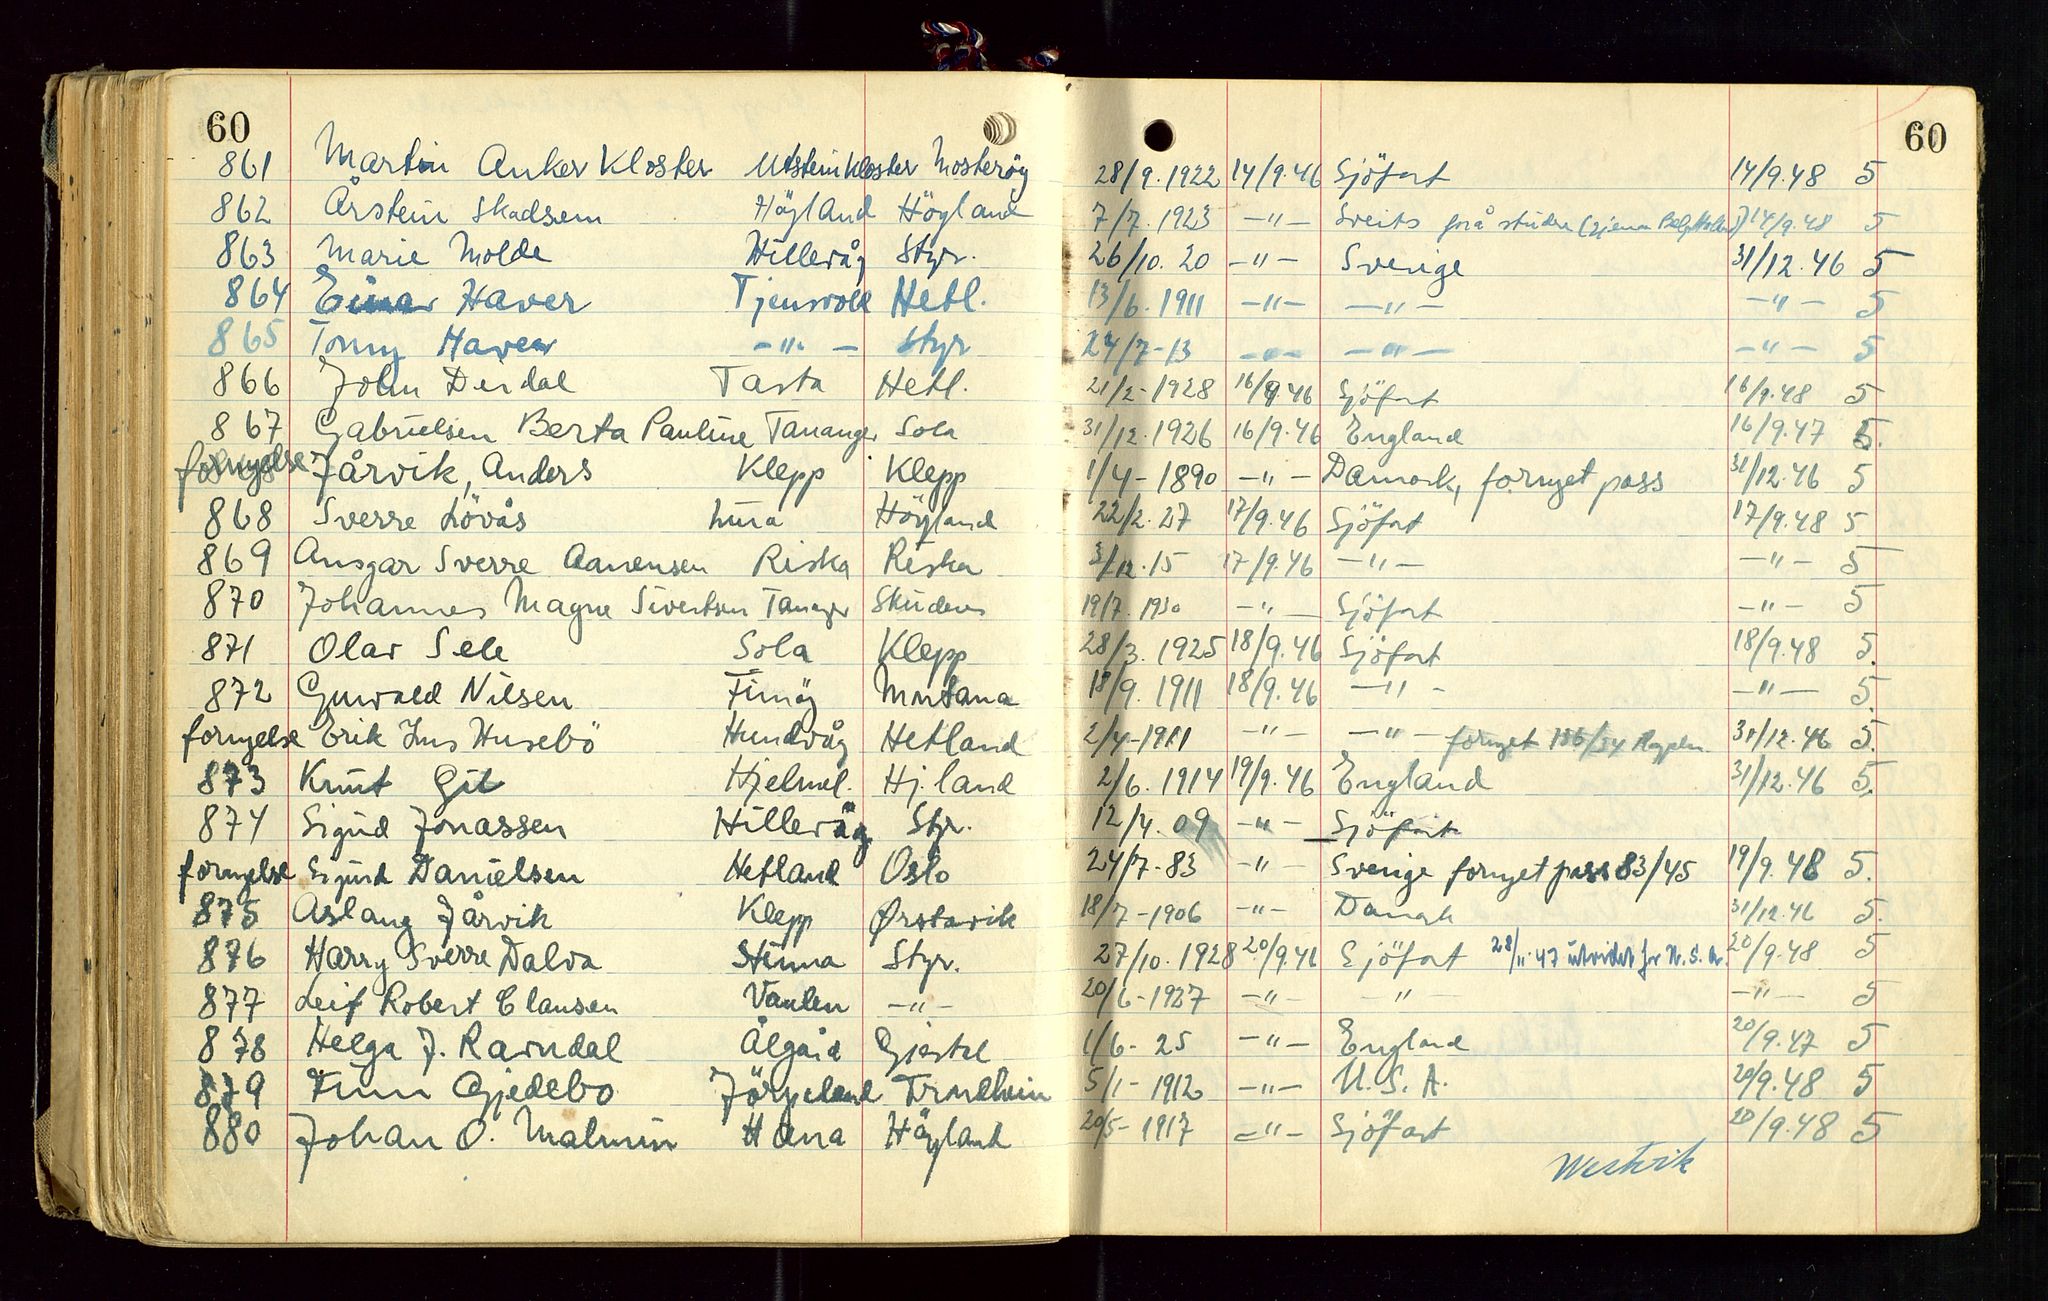 60 60
861 Martin Anker Kloster Utstein Kloster Mosterøy 28/9.1922 14/9.46 Sjöfart 14/9.48 5
862 Årstein Skadsem Höyland Höyland 7/7.1923 -"- Sveits på studie (gjenom Belg Holland) 14/9.48 5
863 Marie Molde Hillevåg Styr. 26/10.20 -"- Sverige 31/12.46 5
864 Einar Haver Tjensvoll Hetl. 13/6.1911 -"- -"- -"- 5
865 Tonny Haver -"- Styr 24/7-13 -"- -"- -"- 5
866 John Dirdal Tasta Hetl. 21/2-1928 16/9.46 Sjöfart 16/9.48 5
867 Gabrielsen Berta Pauline Tananger Sola 31/12.1926 16/9.46 England 16/9.47 5.
fornyelse Jårvik, Anders Klepp Klepp 1/4-1890 -"- Danmark, fornyet pass 31/12.46 5
868 Sverre Lövås Lura Höyland 22/2.27 17/9.46 Sjöfart 17/9.48 5
869 Ansgar Sverre Aanensen Riska Riska 3/12.15 17/9.46 -"- -"- 5
870 Johannes Magne Sivertsen Tananger Skudenes 19/7.1930 -"- Sjöfart -"- 5
871 Olav Sele Sola Klepp 28/3.1925 18/9.46 Sjöfart 18/9.48 5.
872 Gunvald Nilsen Finnöy Montana 18/9.1911 18/9.46 -"- -"- 5.
fornyelse Erik Jens Husebö Hundvåg Hetland 2/4-1911 -"- -"- fornyet 31/12.46 5.
873 Knut Gil Hjelmel. Hj.land 2/6.1914 19/9.46 England 31/12.46 5.
874 Sigurd Jonassen Hillevåg Styr. 12/4.09 -"- Sjöfart
fornyelse Sigurd Danielsen Hetland Oslo 24/7-83 -"- Sverige fornyet pass 83/45 19/9.48 5.
875 Aslaug Jårvik Klepp Ørstavik 18/7-1906 -"- Danmark 31/12.46 5.
876 Harry Sverre Dalva Hinna Styr. 27/10.1928 20/9.46 Sjöfart 28/11.47 utvidet for U.S.A. 20/9.48 5
877 Leif Robert Clausen Vaulen -"- 20/6-1927 -"- -"- -"- 5
878 Helga J. Ravndal Ålgård Gjestal 1/6-25 -"- England 20/9.47 5
879 Finn Gjedebo Jörpeland Trondheim 5/1-1912 -"- U.S.A. 20/9.48 5
880 Johan O. Malmin Hana Höyland 20/5-1917 -"- Sjöfart 20/9.48 5
Westvik